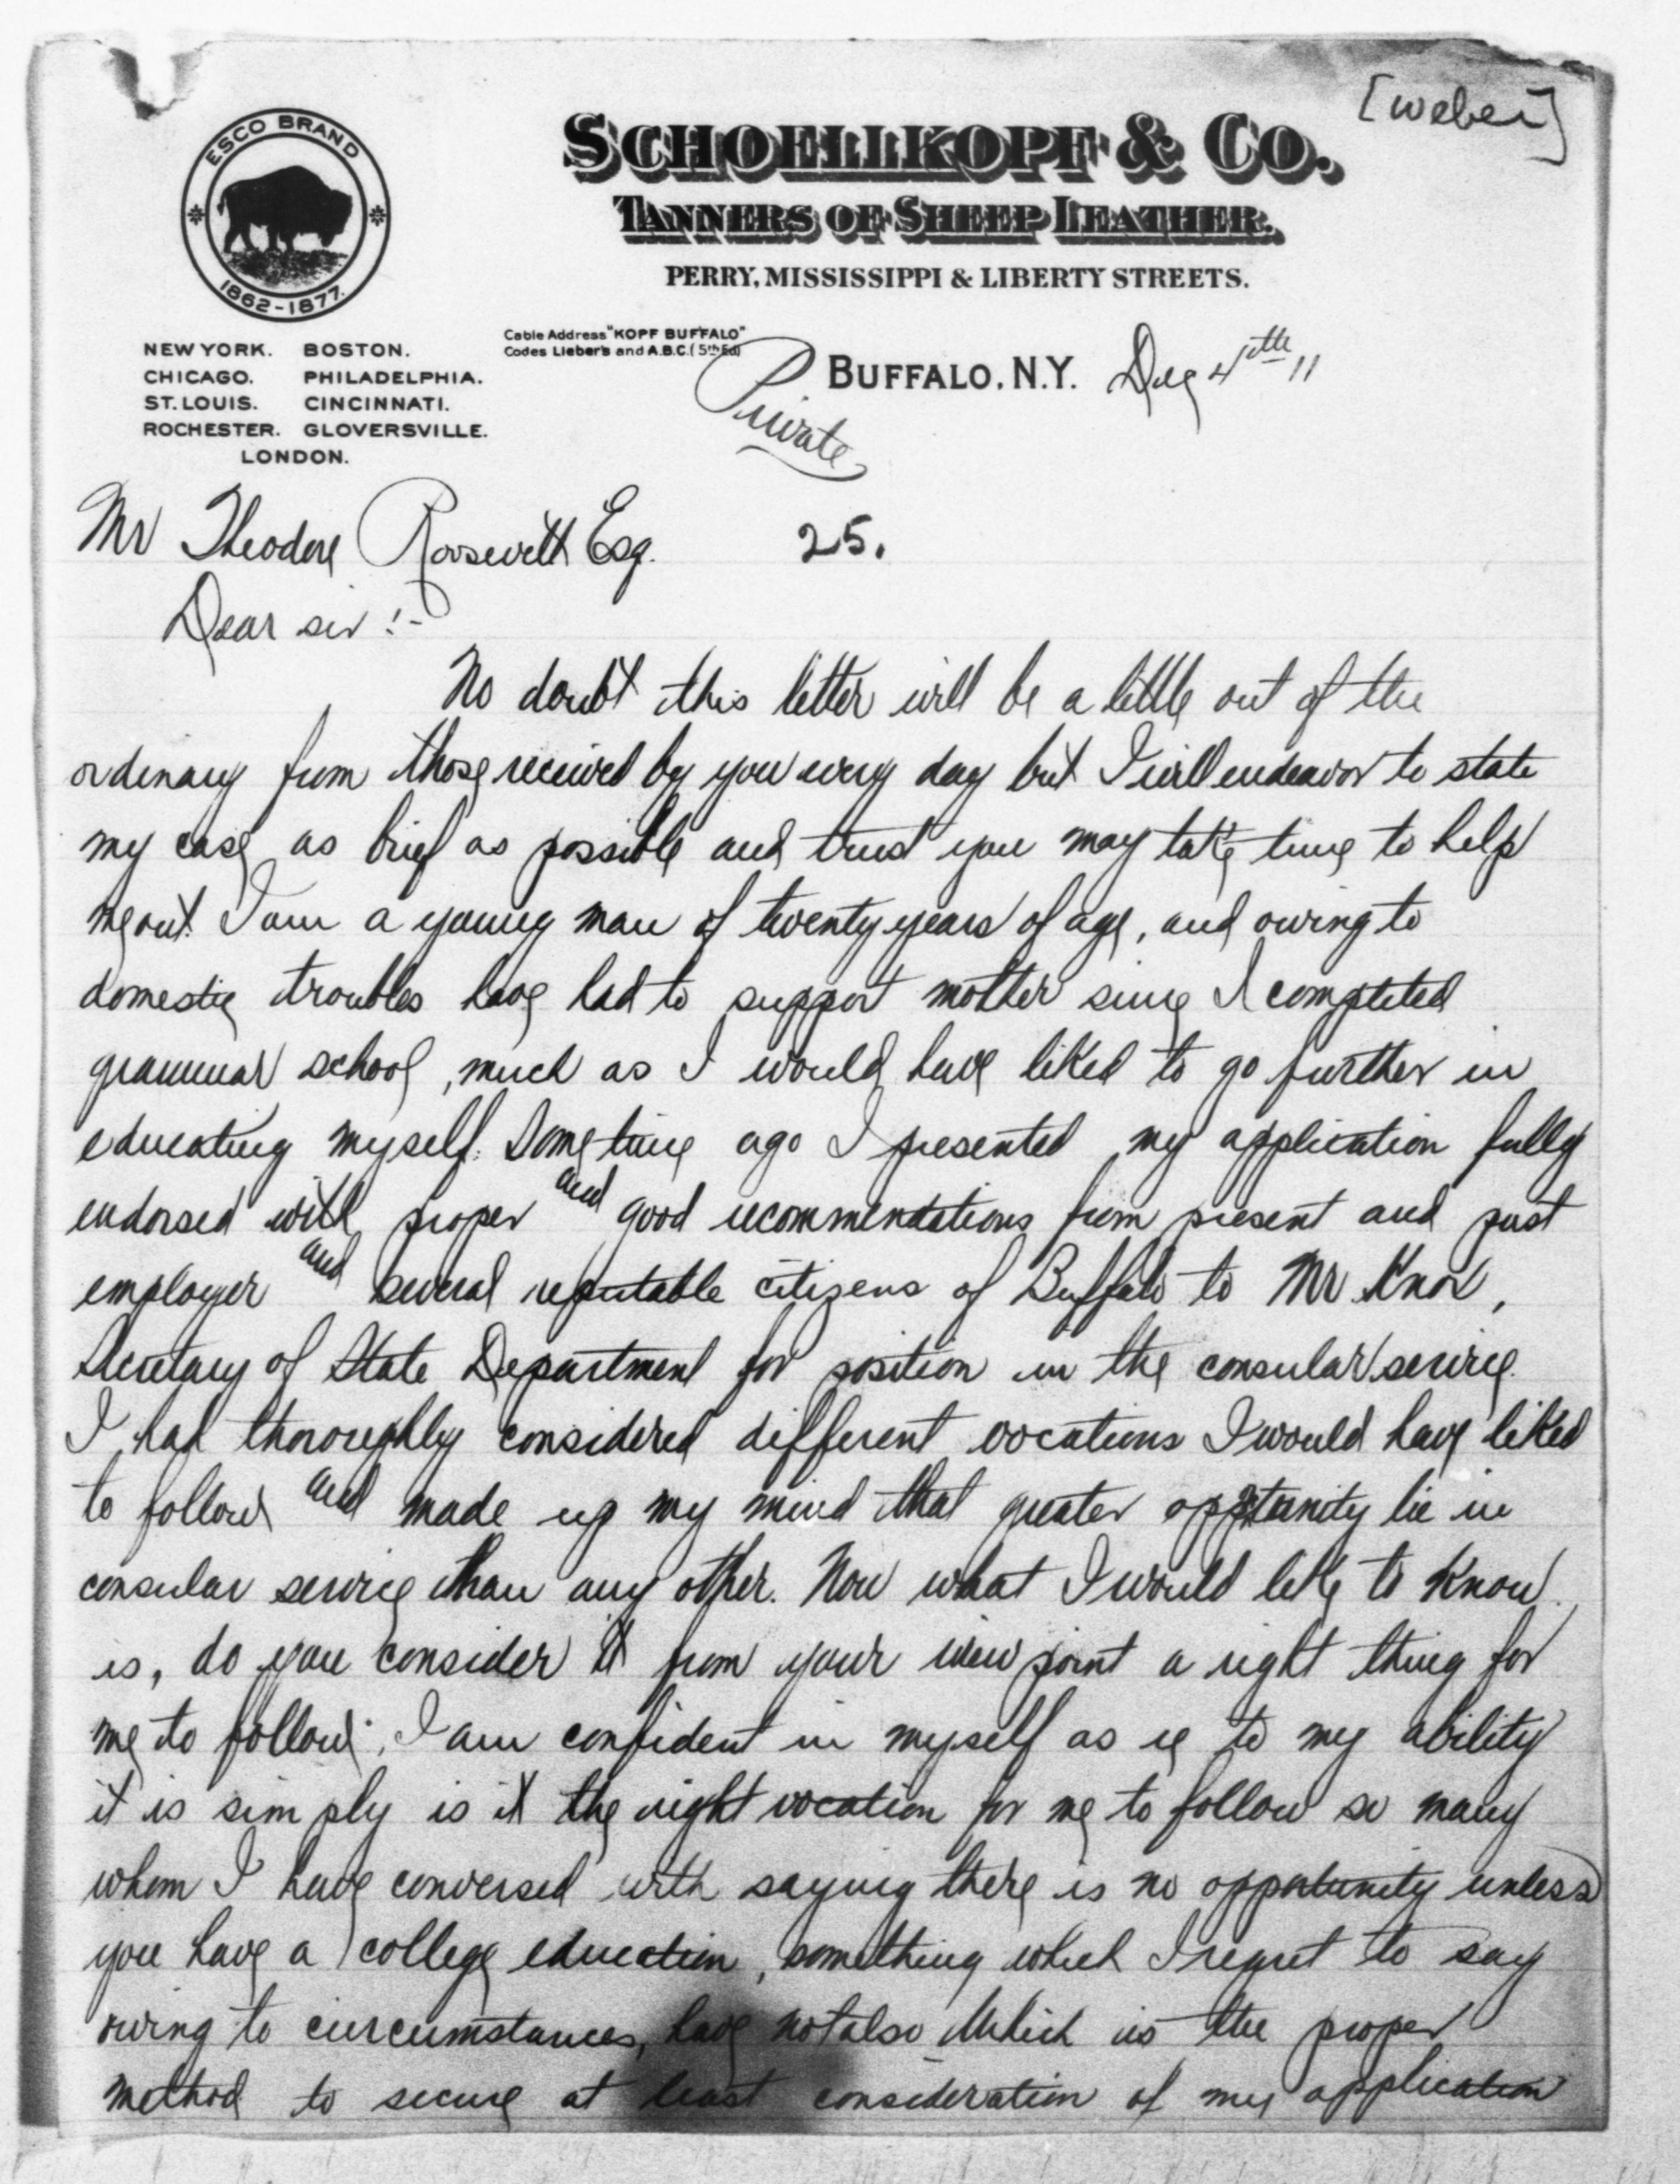 [Weber]
ESCO BRAND
1862-1877.
SCHOELLKOPF & CO.
TANNERS OF SHEEP LEATHER.
PERRY, MISSISSIPPI & LIBERTY STREETS.
Cable Address "KOPF BUFFALO"
Codes Lieber's and A.B.C. (5th Ed)
NEW YORK. BOSTON.
CHICAGO. PHILADELPHIA.
ST. LOUIS. CINCINNATI.
ROCHESTER. GLOVERSVILLE.
LONDON.
BUFFALO, N.Y. 4th 11
Private
Mr Theodore Roosevelt Esq. 25.
Dear sir :-
No doubt this letter will be a little out of the
ordinary from those received by you every day but I will endeavor to state
my case as brief as possible and trust you may take time to help
me out. I am a young man of twenty years of age, and owing to
domestic troubles have had to support mother since I completed
grammar school, much as I would have liked to go further in
educating myself. Some time ago I presented my application fully
endorsed with proper and good recommendations from present and past
employer and several reputable citizens of Buffalo to Mr Knox,
Secretary of State Department for position in the consular service.
I had thoroughly considered different vocations I would have liked
to follow and made up my mind that greater opptunity lie in
consular service than any other. Now what I would like to know
is, do you consider it from your view point a right thing for
me to follow; I am confident in myself as re to my ability
it is simply is it the right vocation for me to follow so many
whom I have conversed with saying there is no opportunity unless
you have a college education, something which I regret to say
owing to circumstances, have not also Which is the proper
method to secure at least consideration of my application